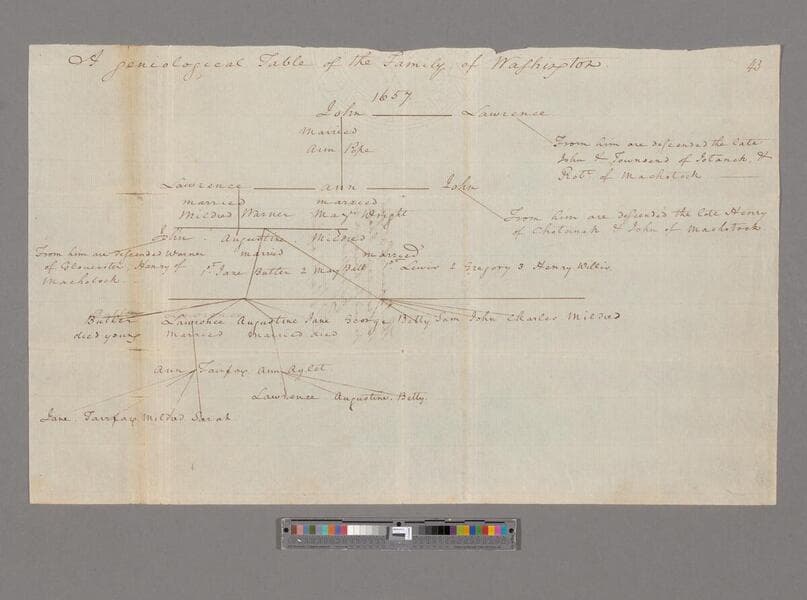 A Geneological Table of the Family of Washington.
43
1657
John Lawrence
Married
Ann Pope
From him are descended the late
John & Townsend of Potanck, &
Robt. of Machotock
Lawrence ann John
married married
Mildred Warner Majr. Wright
From him are descended the late Henry
of Chotanck & John of Machotock
John Augustine Mildred
From him are descended Warner married married
of Gloucester, Henry of 1st. Jane Butler 2 Mary Ball 1st. Lewis 2 Gregory 3 Henry Willis
Machotock
Butler Lawrence Augustine Jane George Betty Sam John Charles Mildred
died young Married Married died
Ann Fairfax Ann Aylet
Lawrence Augustine. Betty.
Jane. Fairfax Mildred Sarah